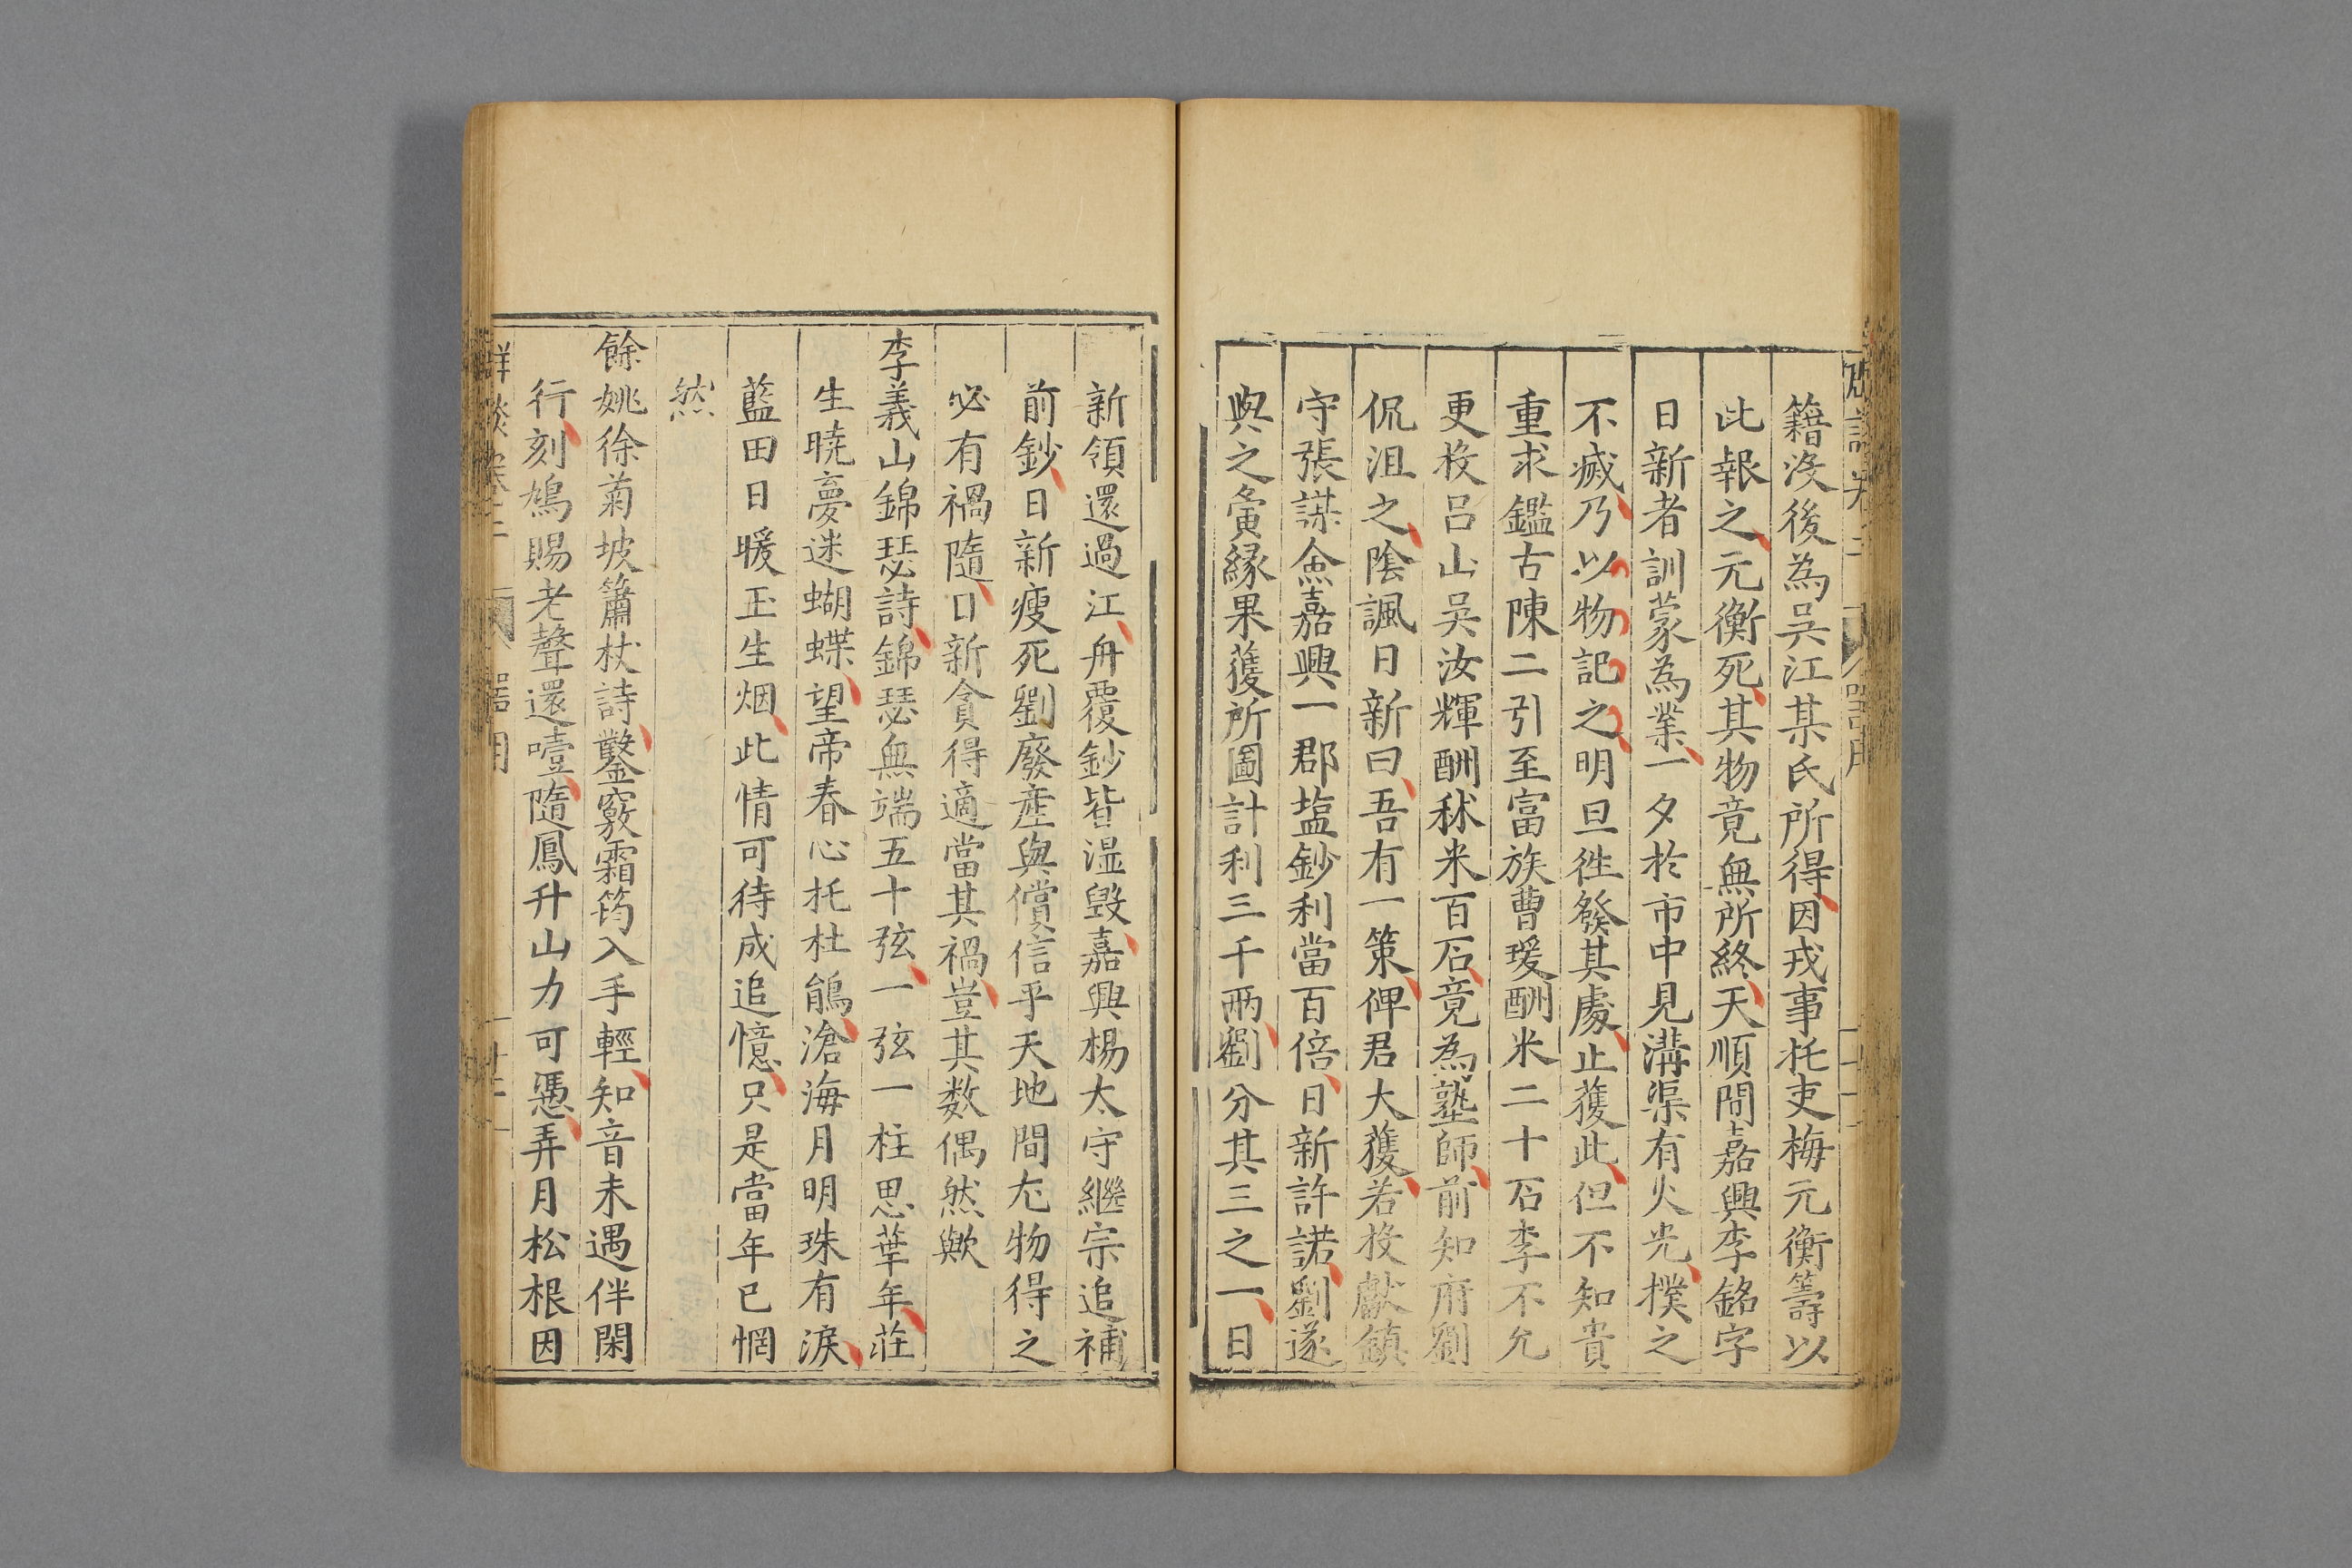 籍没後為吳江某氏所得因戎事托吏梅元衡籌以
此報之元衡死其物竟無所終天順間嘉興李銘字
日新者訓蒙為業一夕於市中見溝渠有火光撲之
不滅乃以物記之明旦徃發其處止獲此但不知貴
重求鑑古陳二引至富族曹瑗酬米二十石李不允
更投吕山吴汝輝酬秫米百石竟為塾師前知府劉
侃沮之陰諷日新曰吾有一策俾君大獲若投獻鎮
守張謀僉嘉興一郡塩鈔利當百倍日新許諾劉遂
與之夤緣果獲所圖計利三千兩劉分其三之一日
新領還過江舟覆鈔皆湿毀嘉興楊太守繼宗追補
前鈔日新瘦死劉廢產與償信乎天地間尤物得之
必有禍隨日新貪得適當其禍豈其数偶然歟
李義山錦瑟詩錦瑟無端五十弦一弦一柱思華年莊
生曉夢迷蝴蝶望帝春心托杜鵑滄海月明珠有淚
藍田日暖玉生烟此情可待成追憶只是當年已惘
然
餘姚徐菊坡簫杖詩鑿竅霜筠入手輕知音未遇伴閑
行刻鳩賜老聲還噎隨鳳升山力可憑弄月松根因